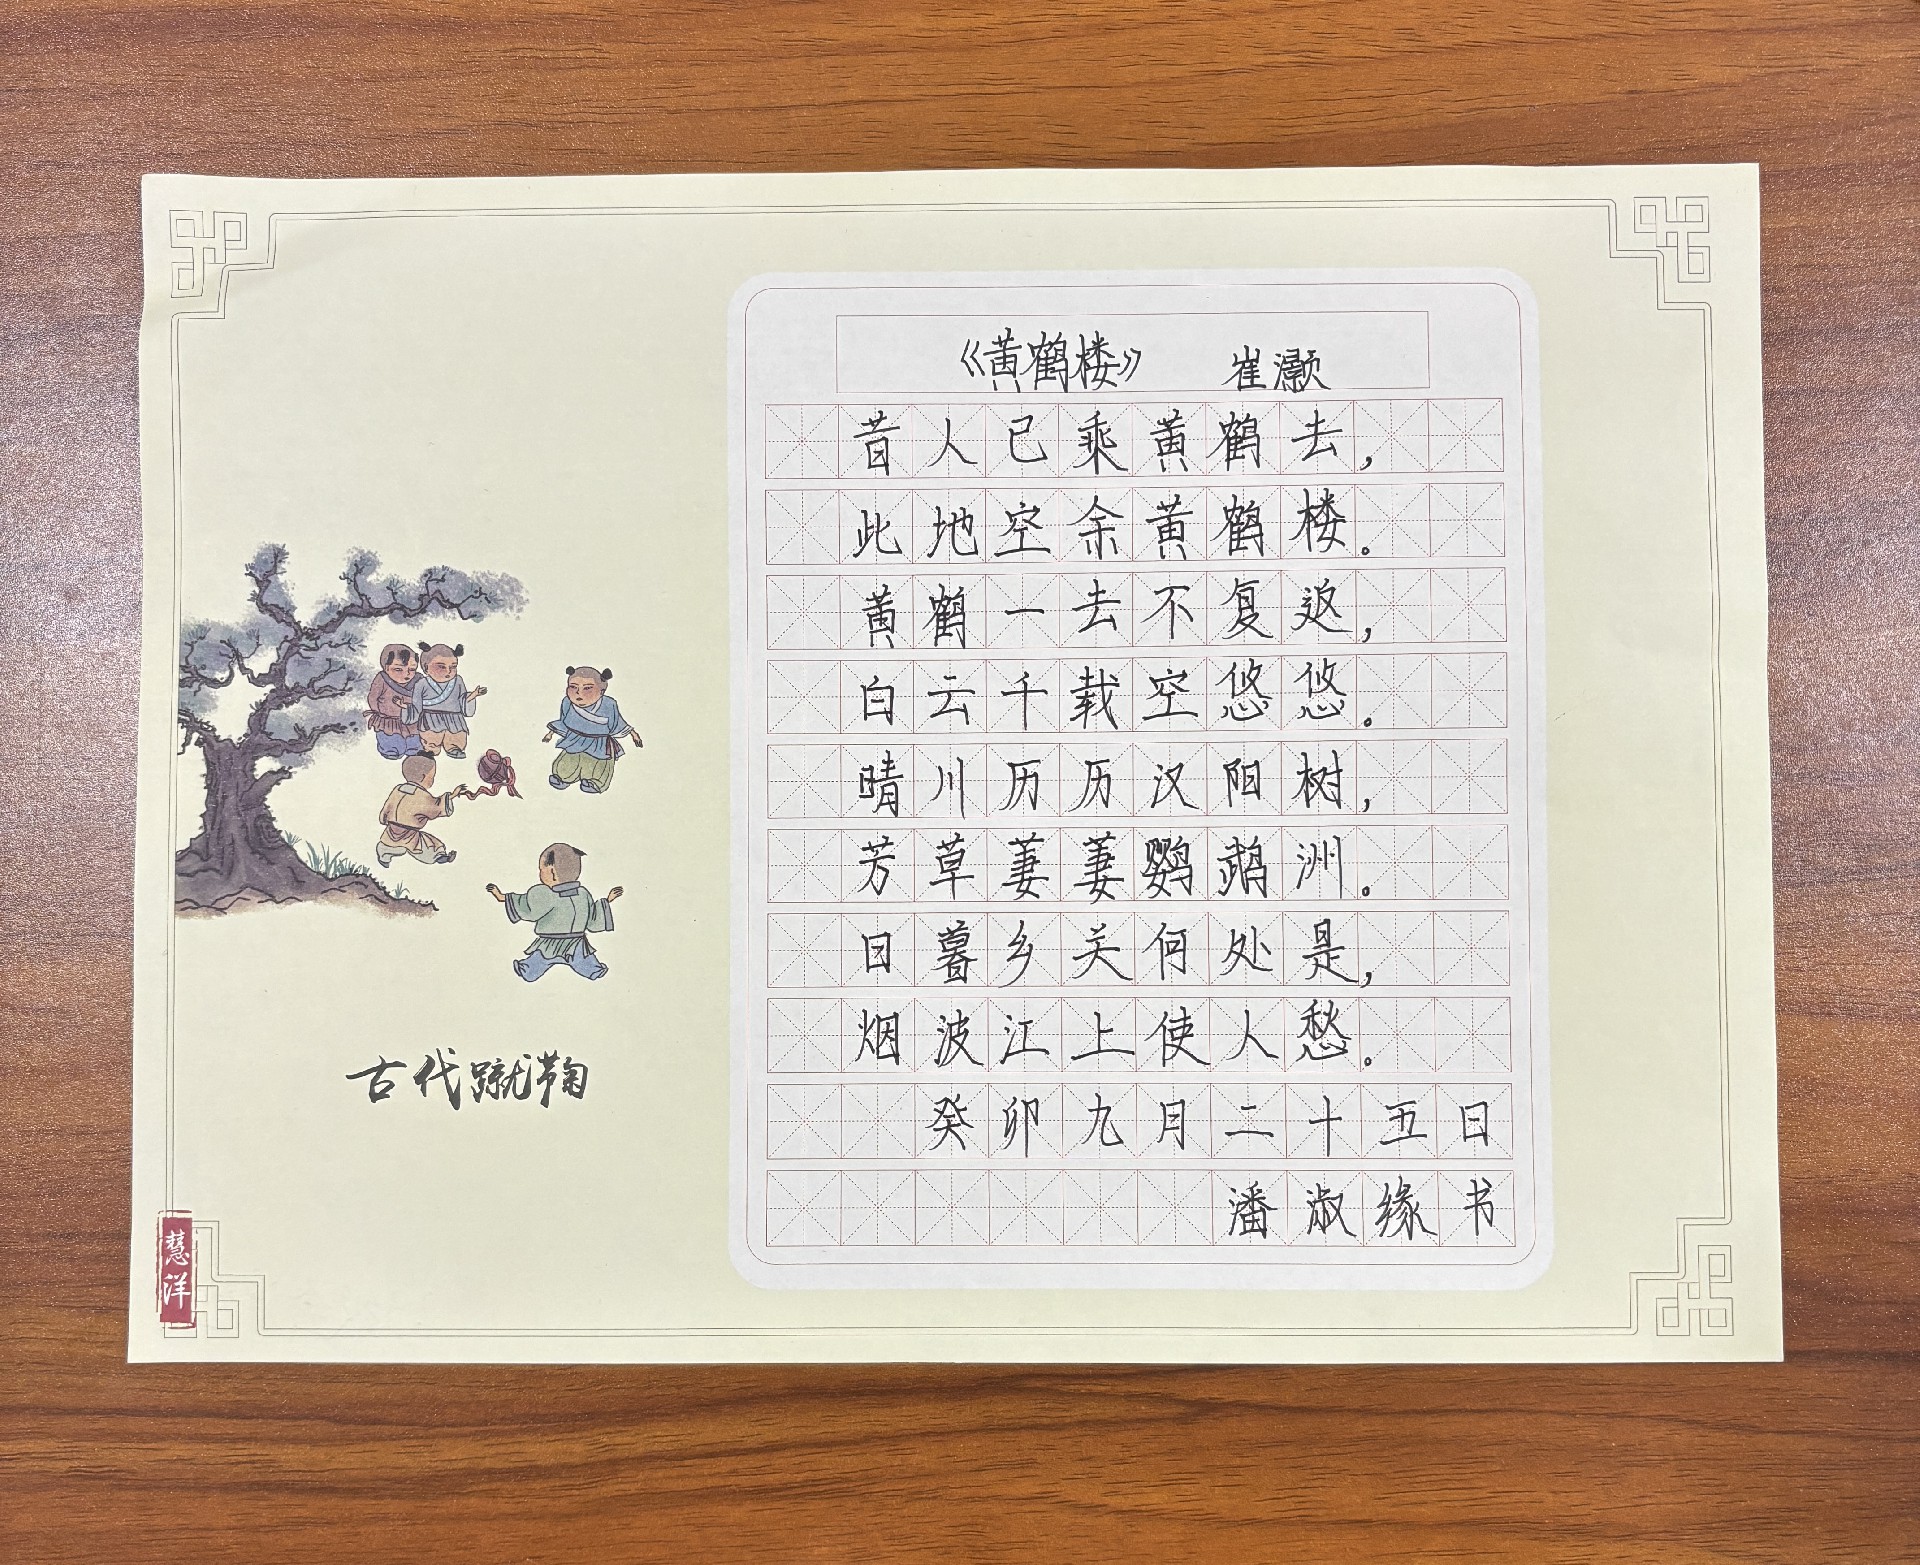 《黄鹤楼》 崔灏
昔人已乘黄鹤去，
此地空余黄鹤楼。
黄鹤一去不复返，
白云千载空悠悠。
晴川历历汉阳树，
芳草萋萋鹦鹉洲。
日暮乡关何处是，
烟波江上使人愁。
癸卯九月二十五日
潘淑缘书
古代蹴鞠
慧洋